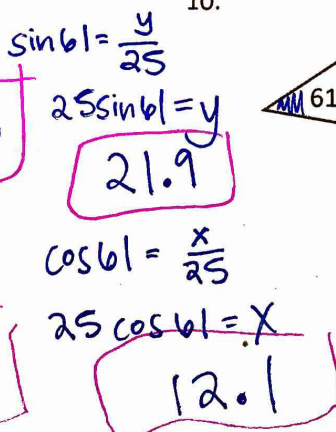 10.
sin61 = y/25
25sin61 = y
61
21.9
cos61 = x/25
25 cos61 = x
12.1